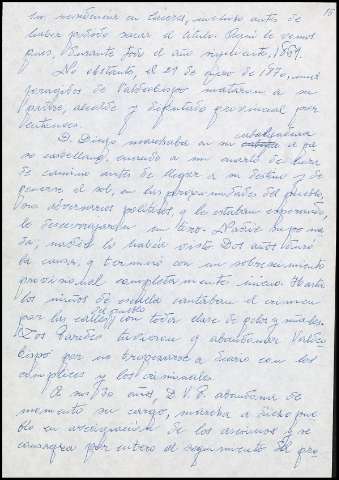 15
su residencia en Cáceres, incluso antes de
haber podido sacar el título. Aquí le vemos
pues, durante todo el año siguiente, 1869.
No obstante, el 21 de enero de 1870, unos
forajidos de Valdeobispo mataron a su
padre, alcalde y diputado provincial por
entonces.
D. Diego marchaba en su cabalgadura a pa-
so castellano, cuando a un cuarto de hora
de camino antes de llegar a su destino y de
ponerse el sol, en las proximidades del pueblo,
sus adversarios políticos, que le estaban esperando,
le descerrajaron un tiro. Nadie supo na-
da; nadie lo había visto. Dos años duró
la causa, y terminó con un sobreseimiento
provisional completamente inicuo. Hasta
los niños de escuela cantaban el crimen
por las calles del pueblo, con toda clase de pelos y señales.
Los Paredes tuvieron que abandonar Valdeo-
bispo por no tropezarse a diario con los
cómplices y los criminales.
A sus 30 años, D. V. P. abandona de
momento su cargo, marcha a dicho pue-
blo en averiguación de los asesinos y se
consagra por entero al seguimiento del pro-